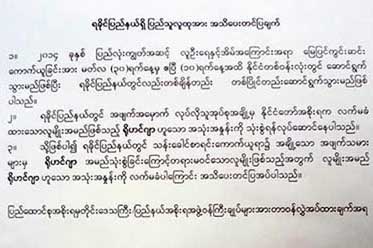 ရခိုင်ပြည်နယ်ရှိ ပြည်သူလူထုအား အသိပေးတင်ပြချက်
၁။ ၂၀၁၄ ခုနှစ် ပြည်လုံးကျွတ်အဆင့် လူဦးရေနှင့်အိမ်အကြောင်းအရာ မြေပြင်ကွင်းဆင်း
ကောက်ယူခြင်းအား မတ်လ (၃၀)ရက်နေ့မှ ဧပြီ (၁၀)ရက်အထိ နိုင်ငံတစ်ဝန်းလုံးတွင် ဆောင်ရွက်
သွားမည်ဖြစ်ပြီး ရခိုင်ပြည်နယ်တွင်လည်းတစ်ချိန်တည်း တစ်ပြိုင်တည်းဆောင်ရွက်သွားမည်ဖြစ်
ပါသည်။
၂။ ရခိုင်ပြည်နယ်တွင် အဖျက်အမှောက် လုပ်လိုသူအုပ်စုအချို့မှ နိုင်ငံတော်အစိုးရက လက်မခံ
ထားသောလူမျိုးအမည်ဖြစ်သည့် ရိုဟင်ဂျာ ဟူသော အသုံးအနှုန်းကို သုံးစွဲရန်လုပ်ဆောင်နေပါသည်။
၃။ သို့ဖြစ်ပါ၍ ရခိုင်ပြည်နယ်တွင် သန်းခေါင်စာရင်းကောက်ယူရာ၌ အချို့သော အဖျက်သမား
များမှ ရိုဟင်ဂျာ အမည်သုံးစွဲခြင်းကြောင့်တရားမဝင်သောလူမျိုးဖြစ်သည့်အတွက် လူမျိုးအမည်
ရိုဟင်ဂျာ ဟူသော အသုံးအနှုန်း ကို လက်မခံပါကြောင်း အသိပေးတင်ပြအပ်ပါသည်။
ပြည်ထောင်စုအစိုးရမှတိုင်းဒေသကြီး၊ ပြည်နယ်အစိုးရအဖွဲ့ဝန်ကြီးချုပ်များအားတာဝန်လွှဲအပ်ထားချက်အရ